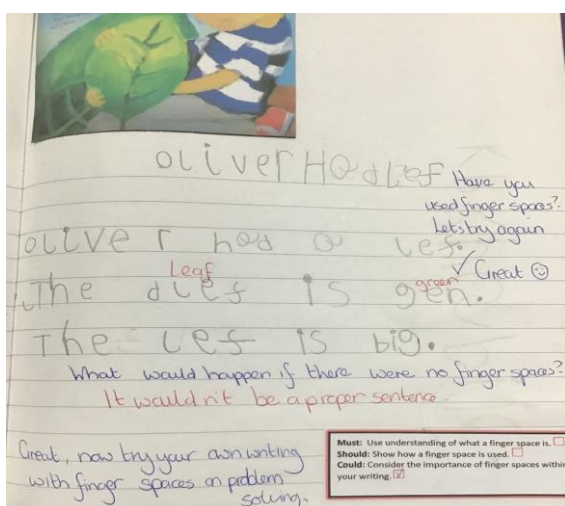 oLiverHadLef
Have you
used finger spaces?
Lets try again
oLive r had a Lef.
✓ Great ☺
Leaf
green
The dLef is gen.
The Lef is big.
What would happen if there were no finger spaces?
It wouldn't be a proper sentence.
Great, now try your own writing
with finger spaces on problem
solving.
Must: Use understanding of what a finger space is.
Should: Show how a finger space is used.
Could: Consider the importance of finger spaces within
your writing. ☑